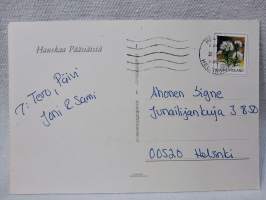 Hauskaa Pääsiäistä
T: Tero, Päivi
Joni & Sami
Ahonen Signe
Junailijankuja 3 B 50
00520 Helsinki